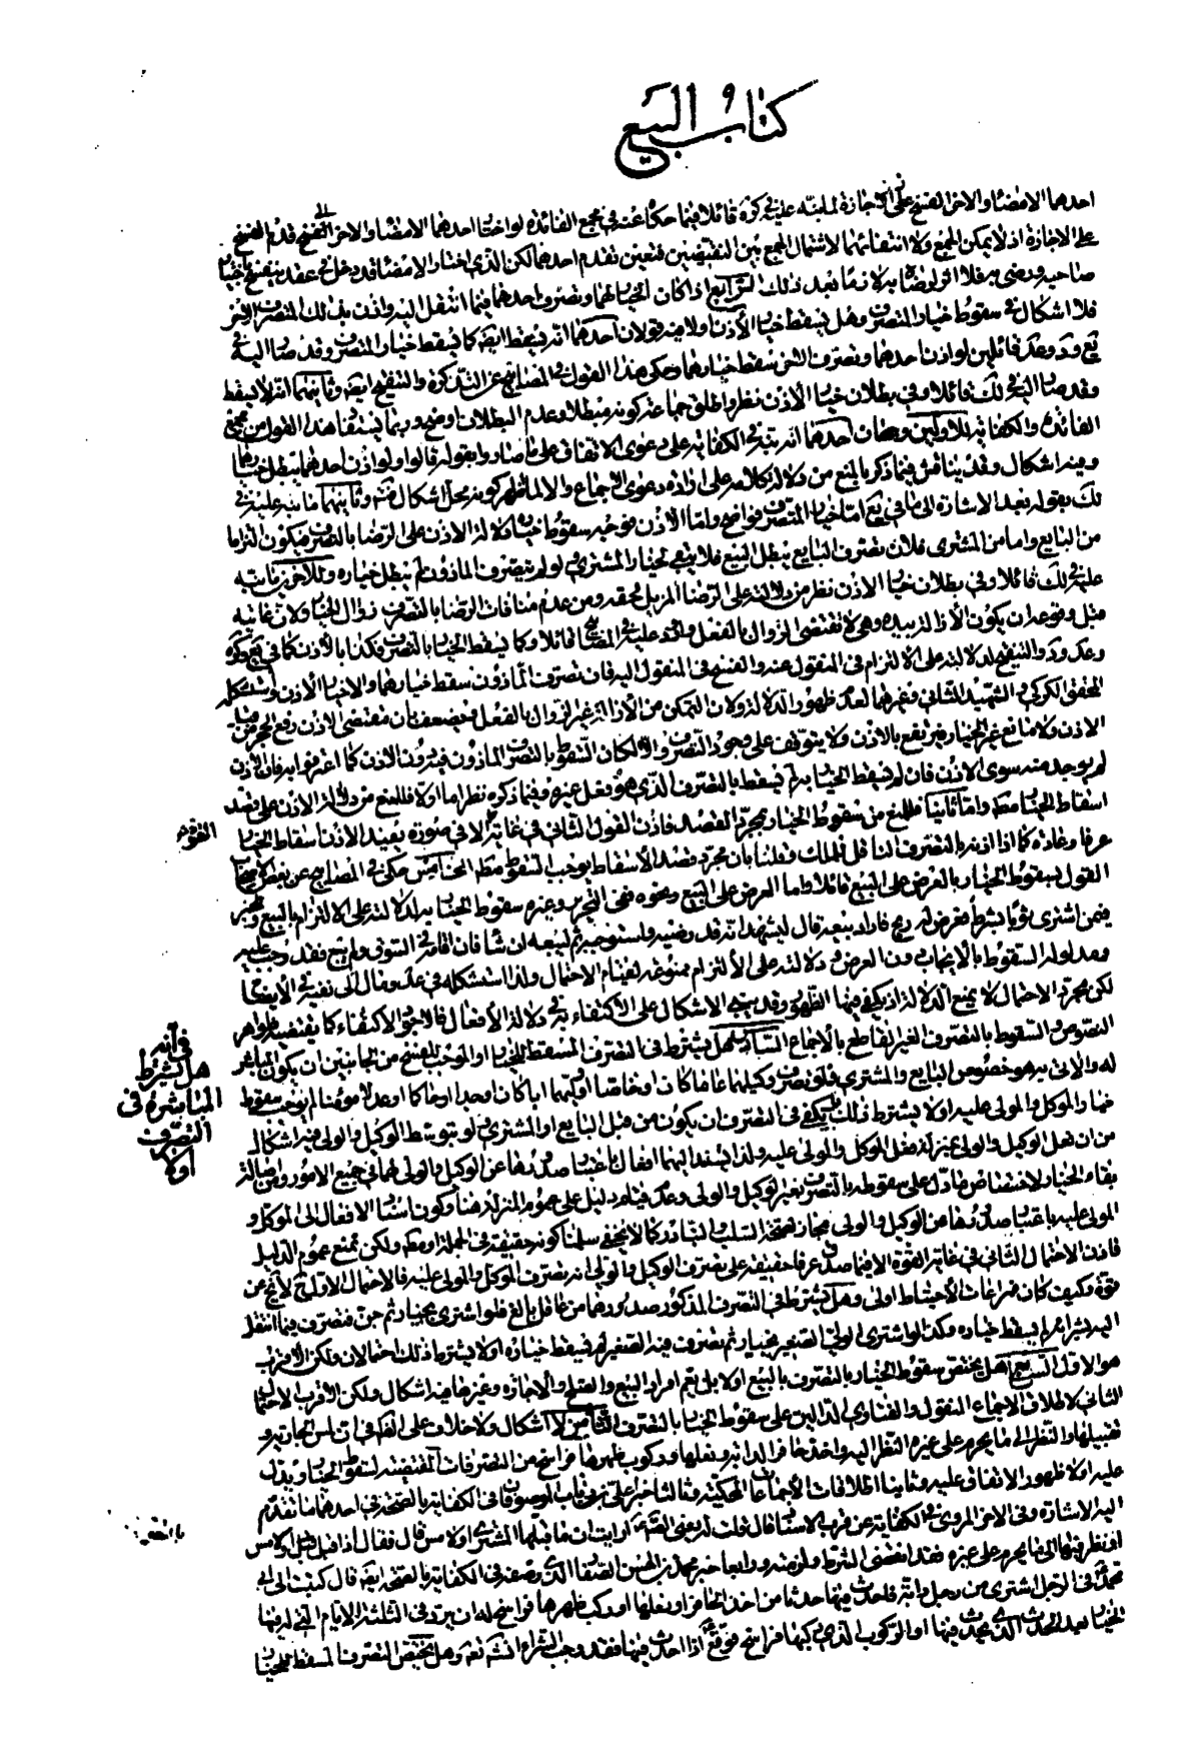 كتاب البيع
احدهما الامضاء والاخر الفسخ على الاجازة لما نبه عليه في كرة قائلا فيما حكاه عنه في مجمع الفائدة لو اختار احدهما الامضاء والاخر الفسخ قدم الفسخ
على الاجازة اذ لا يمكن الجمع ولا انتفائهما لاشتمال الجمع بين النقيضين فتعين تقدم احدهما لكن الذي اختار الامضاء قد دخل في عقد ينفسخ باختيار
صاحبه ورضى به فلا اثر لرضاه به لازما بعد ذلك الرابع اذا كان الخيار لهما وتصرف احدهما فيما انتقل اليه واذن بذلك التصرف الاخر
فلا اشكال في سقوط خيار المتصرف وهل يسقط خيار الأذن اولا فيه قولان احدهما انه يسقط ايضه كما يسقط خيار المتصرف وقد صار اليه في
يع ود وعد قائلين لو اذن احدهما وتصرف الاخر سقط خيارهما وحكى هذا القول في المصابيح عن التذكرة والتنقيح ايضه وثانيهما انه لا يسقط
وقد صار اليه في لك قائلا وفي بطلان خيار الأذن نظر واطلق جماعة كونه مبطلا وعدم البطلان اوضح وربما يستفاد هذا القول من مجمع
الفائدة والكفاية للاولين وجهان احدهما انه نبه في الكفاية على دعوى الاتفاق على ما صاروا بقوله قالوا ولو اذن احدهما بطل خيارهما
وفيه اشكال وقد يناقش فيما ذكر بالمنع من دلالة كلامه على ارادة دعوى الاجماع والا لما ظهر كونه محل اشكال فتم وثانيهما ما نبه عليه في
لك بقوله بعد الاشارة الى ما في يع اما خيار المتصرف فواضح واما الأذن فوجه سقوط خياره دلالة الاذن على الرضا بالتصرف فيكون التزاما
من البايع واما من المشتري فلان تصرف البايع يبطل البيع فلا يبقى لخيار المشتري ولو لم يتصرف الماذون لم يبطل خياره وللاخر ما نبه
عليه في لك قائلا وفي بطلان خيار الاذن نظر من دلالته على الرضا المزيل لحقه ومن عدم منافات الرضا بالتصرف زوال الخيار ولان غايته
قبل وقوعه ان يكون الازالة بيده وهي لا تقتضي الزوال بالفعل واورد عليه في المصابيح قائلا وكما يسقط الخيار بالتصرف فكذا بالأذن كما في يع وكره
وعد ود والتنقيح لدلالته على الالتزام في المنقول عنه والفسخ في المنقول اليه فان تصرف الماذون سقط خيارهما والا خيار الأذن واستشكله
المحقق الكركي والشهيد الثاني وغيرهما لعدم ظهور الدلالة ولان التمكن من الأزالة غير الزوال بالفعل ويضعف بان مقتضى الاذن رفع الحجر من
الاذن ولا مانع غير الخيار فيرتفع بالاذن ولا يتوقف على وجود التصرف والا لكان السقوط بالتصرف الماذون فيه دون الاذن كما اعترفوا به فان الأذن
لم يوجد منه سوى الاذن فان لم يسقط الخيار به لم يسقط بالتصرف الذي هو فعل غيره وفيما ذكره نظر اما اولا فللمنع من دلالة الاذن على قصد
اسقاط الخيار مطه واما ثانيا فللمنع من سقوط الخيار بمجرد القصد فاذن القول الثاني في غاية القوة الا في صورة يفيد الاذن اسقاط الخيار
عرفا وعادة كما اذا اذن له بالتصرف الناقل فلملك وقلنا بان مجرد قصد الأسقاط يوجب السقوط مطه الخامس حكى في المصابيح عن بعض
القول بسقوط الخيار بالعرض على البيع قائلا واما العرض على البيع ونحوه ففي التحرير وغيره سقوط الخيار به لدلالته على الالتزام بالبيع وللخبر
فيمن اشترى ثوبا بشرط فعرض له ربح فاراد بيعه قال ليشهد انه قد رضيه واستوجبه ثم ليبعه ان شاء فان اقامه في السوق ولم يبع فقد وجب عليه
ومدلوله السقوط بالأيجاب دون العرض ودلالته على الألتزام ممنوعة لقيام الاحتمال ولذا استشكله في عد ومال الى نفيه في الأيضاح
لكن مجرد الاحتمال لا يمنع الدلالة اذ يكفي فيها الظهور وقد يتجه الاشكال على الأكتفاء به في دلالة الأفعال فالاجود الاكتفاء كما يقتضيه ظواهر
النصوص والسقوط بالتصرف لغير القاطع بالأجماع السادس هل يشترط في التصرف المسقط للخيار او الموجب للفسخ من الجانبين ان يكون المباشر
له والاتي به هو خصوص البايع والمشتري فلو تصرف وكيلهما عاما كان او خاصا او وليهما ابا كان او جدا او حاكما او عدلا مؤمنا لم يوجب سقوط
خيار الموكل والمولى عليه اولا يشترط ذلك بل يكفي في التصرف ان يكون من قبل البايع او المشتري ولو بتوسط الوكيل والولي فيه اشكال
من ان فعل الوكيل والولي بمنزلة فعل الموكل والمولى عليه ولذا يسند اليهما افعال باعتبار صدورها عن الوكيل والولي لهما في جميع الامور ومن اصالة
بقاء الخيار لاختصاص ما دل على سقوطه بالتصرف بغير الوكيل والولي وعدم قيام دليل على عموم المنزلة هنا وكون اسناد الافعال الى الموكل و
المولى عليه باعتبار صدورها من الوكيل والولي مجاز لصحة السلب والتبادر كما لا يخفى سلمنا كونه حقيقة في الجملة او مطه ولكن نمنع عموم الدليل
فاذن الاحتمال الثاني في غاية القوة الا فيما صدق عرفا حقيقة على تصرف الوكيل والولي انه تصرف الموكل والمولى عليه فالاحتمال الاول لا يخ عن
قوة وكيف كان فمراعات الأحتياط اولى وهل يشترط في التصرف المذكور صدورها من عاقل بالغ فلو اشترى بخيار ثم جن فتصرف فيما انتقل
اليه بشرائه لم يسقط خياره وكذا لو اشترى الولي الصغير بخيار ثم تصرف فيه الصغير لم يسقط خياره اولا يشترط ذلك احتمالان ولكن الأقرب
هو الاول السابع هل يختص سقوط الخيار بالتصرف بالبيع اولا بل يعم افراد البيع والصلح والاجازة وغيرها فيه اشكال ولكن الأقرب الاحتمال
الثاني لاطلاق الاجماع المنقول والفتاوى الدالين على سقوط الخيار بالتصرف الثامن لا اشكال ولا خلاف على الظ في ان لمس الجارية و
تقبيلها والنظر الى ما يحرم على غيره النظر اليه واخذ حافر الدابة ونعلها وركوب ظهرها فراسخ من التصرفات المقتضية لسقوط الخيار ويدل
عليه اولا ظهور الاتفاق عليه وثانيا اطلاقات الأجماعات المحكية وثالثا خبر علي بن رئاب الموصوف في الكفاية بالصحة في احدهما ما تقدم
اليه الاشارة وفي الاخر المروي في الكفاية عن قرب الاسناد قال قلت له يعني الصادق ع ارايت ان قبلها المشتري او لامس قال فقال اذا قبل او لامس
او نظر منها الى ما يحرم على غيره فقد انقضى الشرط ولزمه ورابعا خبر محمد بن الحسن الصفار الذي وصفه في الكفاية بالصحة ايضه قال كتبت الى ابي
محمد ع في الرجل اشترى من رجل دابة فاحدث فيها حدثا من اخذ الحافر او نعلها او ركب ظهرها فراسخ له ان يردها في الثلثة الايام التي له فيها
الخيار بعد الحدث الذي يحدث فيها او الركوب الذي ركبها فراسخ فوقع ع اذا احدث فيها فقد وجب الشراء انشه تعه وهل يختص التصرف المسقط للخيار
القوة
في انه
هل يشترط
المباشرة في
التصرف
اولا